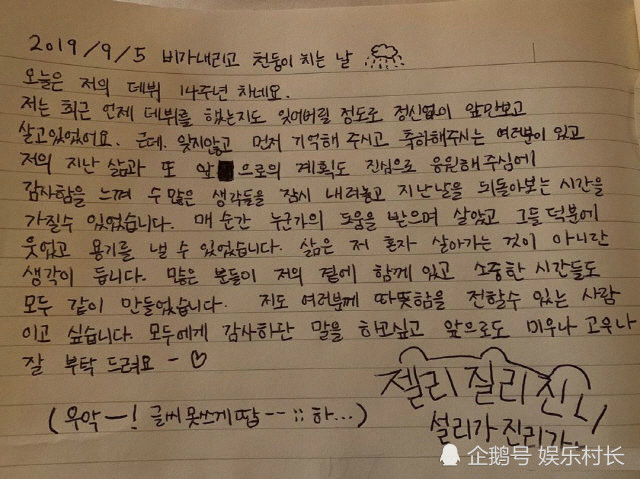 2019/9/5 비가내리고 천둥이 치는 날
오늘은 저의 데뷔 14주년 차네요.
저는 최근 언제 데뷔를 했는지도 잊어버릴 정도로 정신없이 앞만보고
살고있었어요. 근데, 잊지않고 먼저 기억해 주시고 축하해주시는 여러분이 있고
저의 지난 삶과 또 앞으로의 계획도 진심으로 응원해주심에
감사함을 느껴 수많은 생각들을 잠시 내려놓고 지난날을 뒤돌아보는 시간을
가질수 있었습니다. 매 순간 누군가의 도움을 받으며 살았고 그들 덕분에
웃었고 용기를 낼 수 있었습니다. 삶은 저 혼자 살아가는 것이 아니란
생각이 듭니다. 많은 분들이 저의 곁에 함께 있고 소중한 시간들도
모두 같이 만들었습니다. 저도 여러분께 따뜻함을 전할수 있는 사람
이고 싶습니다. 모두에게 감사하단 말을 하고싶고 앞으로도 미우나 고우나
잘 부탁 드려요 - ♡
(우악-! 글씨 못쓰게땁-- ;; 하...)
젤리 질리 진
설리가 진리가..
企鹅号 娱乐村长